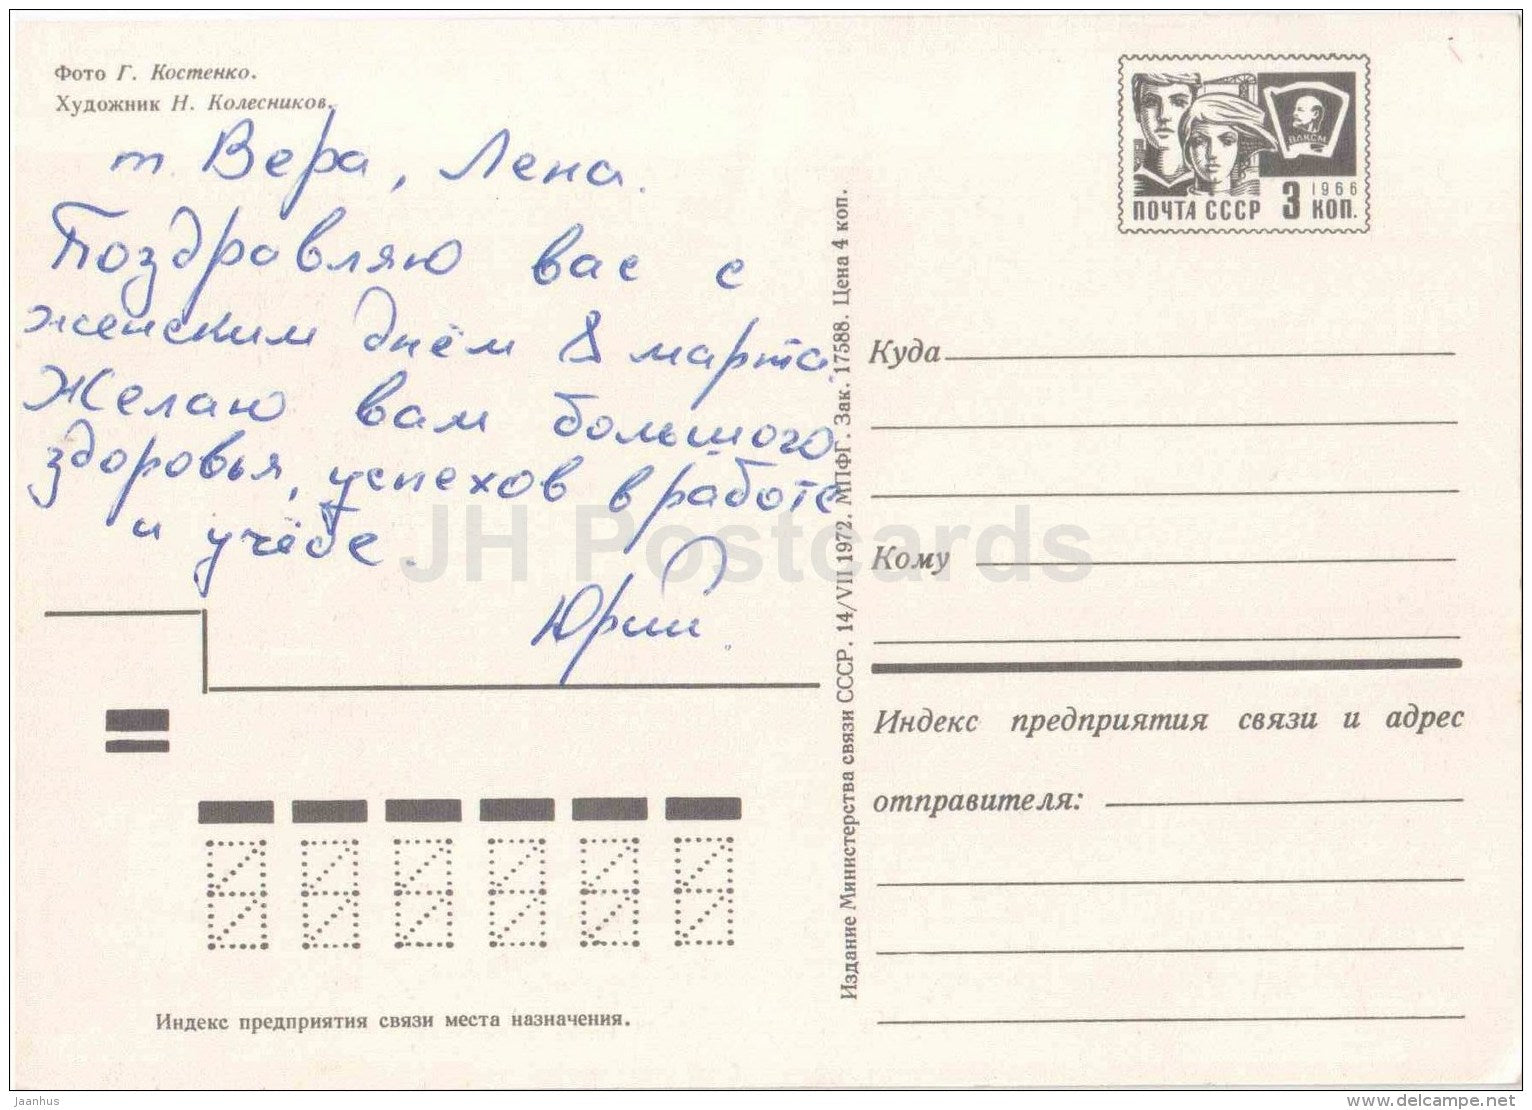 Фото Г. Костенко.
Художник Н. Колесников.
т. Вера, Лена.
Поздравляю вас с
женским днём 8 марта.
Желаю вам большого
здоровья, успехов в работе
и учёбе.
Юрий.
Индекс предприятия связи места назначения.
Издание Министерства связи СССР. 14/VII 1972. МПФГ. Зак. 17588. Цена 4 коп.
ВЛКСМ
1966
ПОЧТА СССР 3 КОП.
Куда
Кому
Индекс предприятия связи и адрес
отправителя:
JH Postcards
Jaanhus
delcampe.net